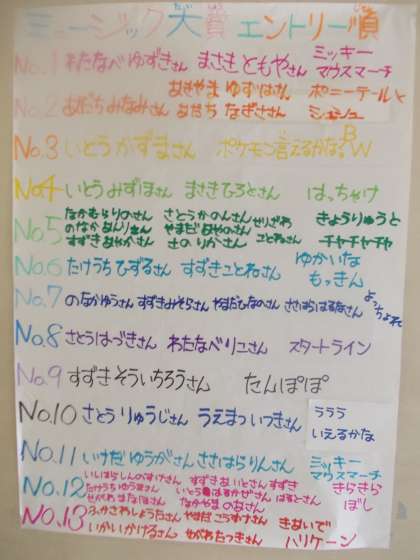 ミュージック大賞 エントリー順
No.1 わたなべ ゆずきさん まさき ともやさん ミッキーマウスマーチ
No.2 あきやま ゆずはさん ポニーテールと
あだちみなみさん あだち なぎささん シュシュ
No.3 いとうかずまさん ポケモン言えるかな?BW
No.4 いとうみずほさん まさきひろとさん はっちゃけ
No.5 なかむらりのさん さとうかのんさん せりざわ きょうりゅうと
のなかあんりさん やまだあやのさん ことねさん チャチャチャ
すずきあやかさん さの りかさん
No.6 たけうちひずるさん すずきことねさん ゆかいな
もっきん
No.7 のなかゆうさん すずきみそらさん やまだひなのさん ささはらはるなさん
No.8 さとうはづきさん わたなべりこさん スタートライン
No.9 すずきそういちろうさん たんぽぽ
No.10 さとうりゅうじさん うえまついつきさん ううう
いえるかな
No.11 いけだゆうがさん ささはらりんさん ミッキー
マウスマーチ
No.12 いしはらしんのすけさん すずきあいとさん すずき きらきら
たけうちゆうまさん いとうはるかぜさん はるとさん ぼし
せがわまなほさん なかやままなさん
No.13 ふかさわしょうたさん やまだこうすけさん きあいで
いかいかけるさん せがわたつきさん ハリケーン